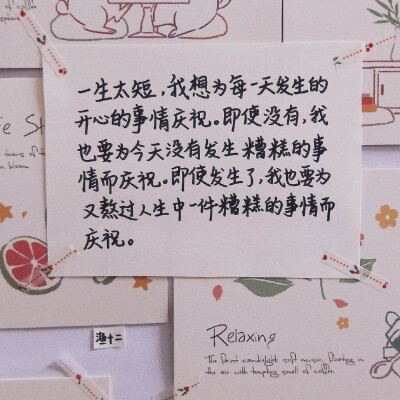 一生太短，我想为每一天发生的
开心的事情庆祝。即使没有，我
也要为今天没有发生糟糕的事
情而庆祝。即使发生了，我也要为
又熬过人生中一件糟糕的事情而
庆祝。
渔十二
Relaxing
The faint candlelight, soft music, floating in
the air with tempting smell of coffee.